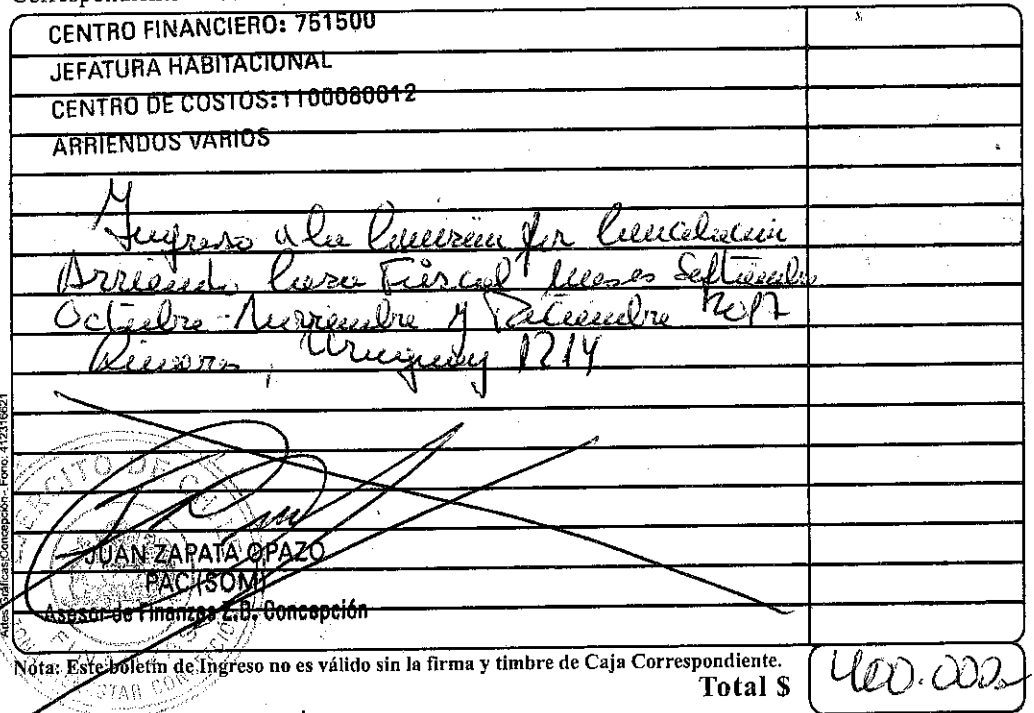 CENTRO FINANCIERO: 751500
JEFATURA HABITACIONAL
CENTRO DE COSTOS: 1100080012
ARRIENDOS VARIOS
Ingreso a la Comisión por Cancelación
Arriendo Casa Fiscal meses Septiembre
Octubre - Noviembre y Diciembre 2017
Linares, Uruguay 1214
EJERCITO DE
JUAN ZAPATA OPAZO
PAC (SOM)
Asesor de Finanzas Z.B. Concepción
Artes Gráficas Concepción - Fono: 412316621
Nota: Este boletín de Ingreso no es válido sin la firma y timbre de Caja Correspondiente.
Total $ 400.000